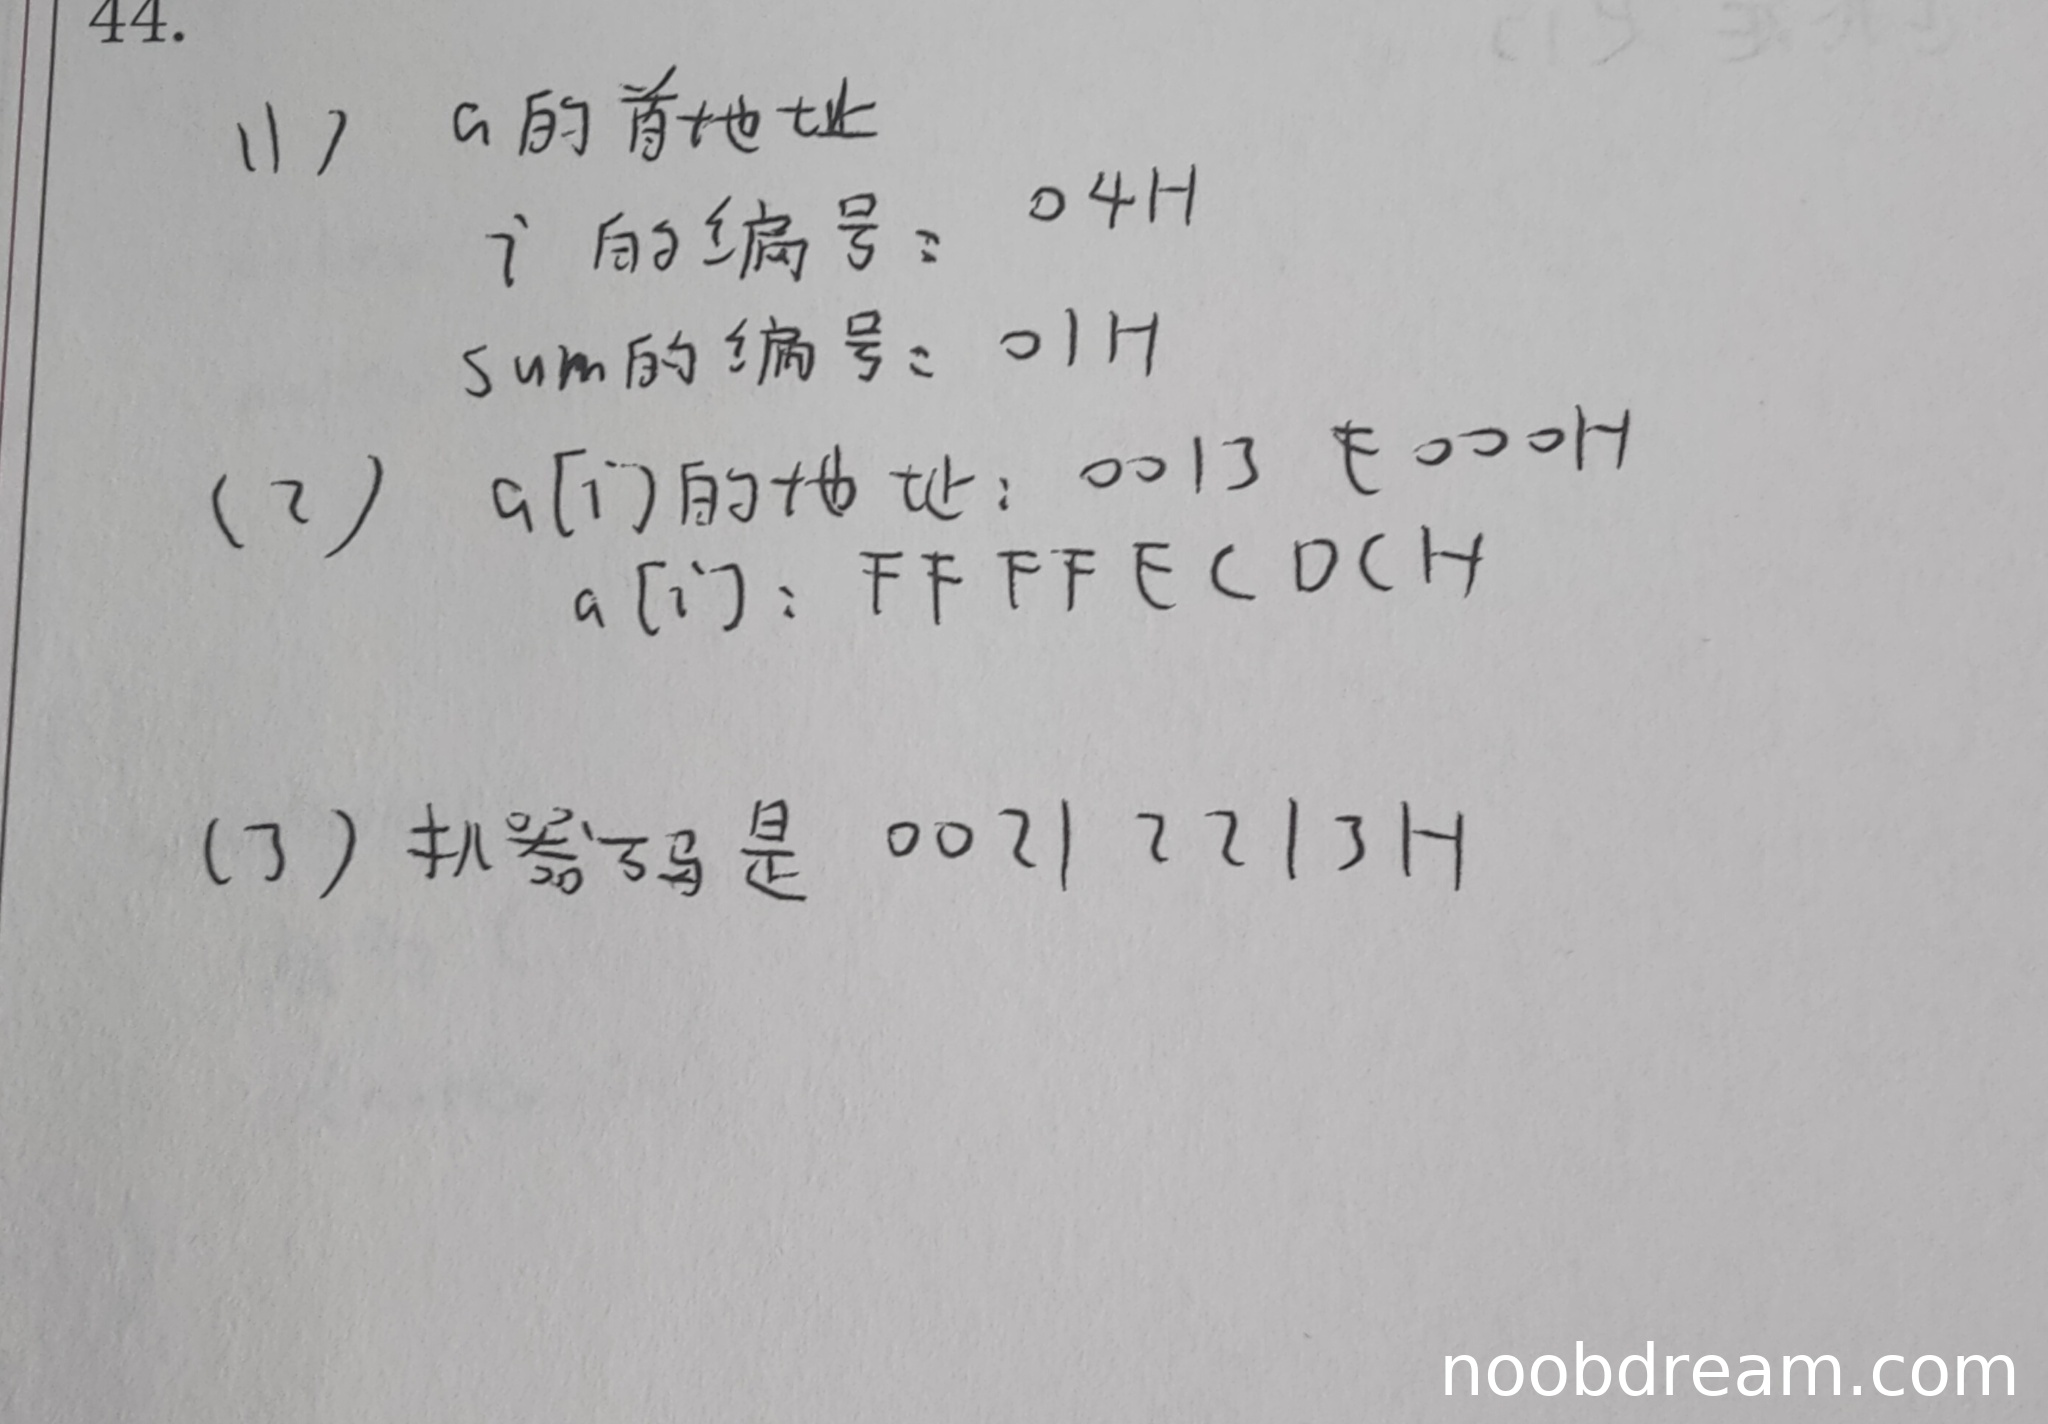 44.
(1) a的首地址
i的编号: 04H
sum的编号: 01H
(2) a[i]的地址: 0013 E000H
a[i]: FFFF ECDCH
(3) 机器码是 0021 2213H
noobdream.com